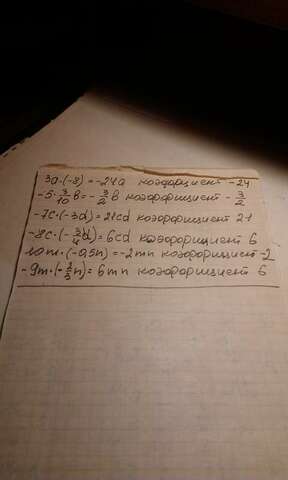 3a·(-8)=-24a коэфорциент -24
-5·3/10 b=-3/2 b коэфорфициент -3/2
-7c·(-3d)=21cd коэфорфициент 21
-8c·(-3/4 d)=6cd коэфорфициент 6
10m·(-0,5n)=-2mn коэфорфициент -2
-9m·(-2/3 n)=6mn коэфорфициент 6